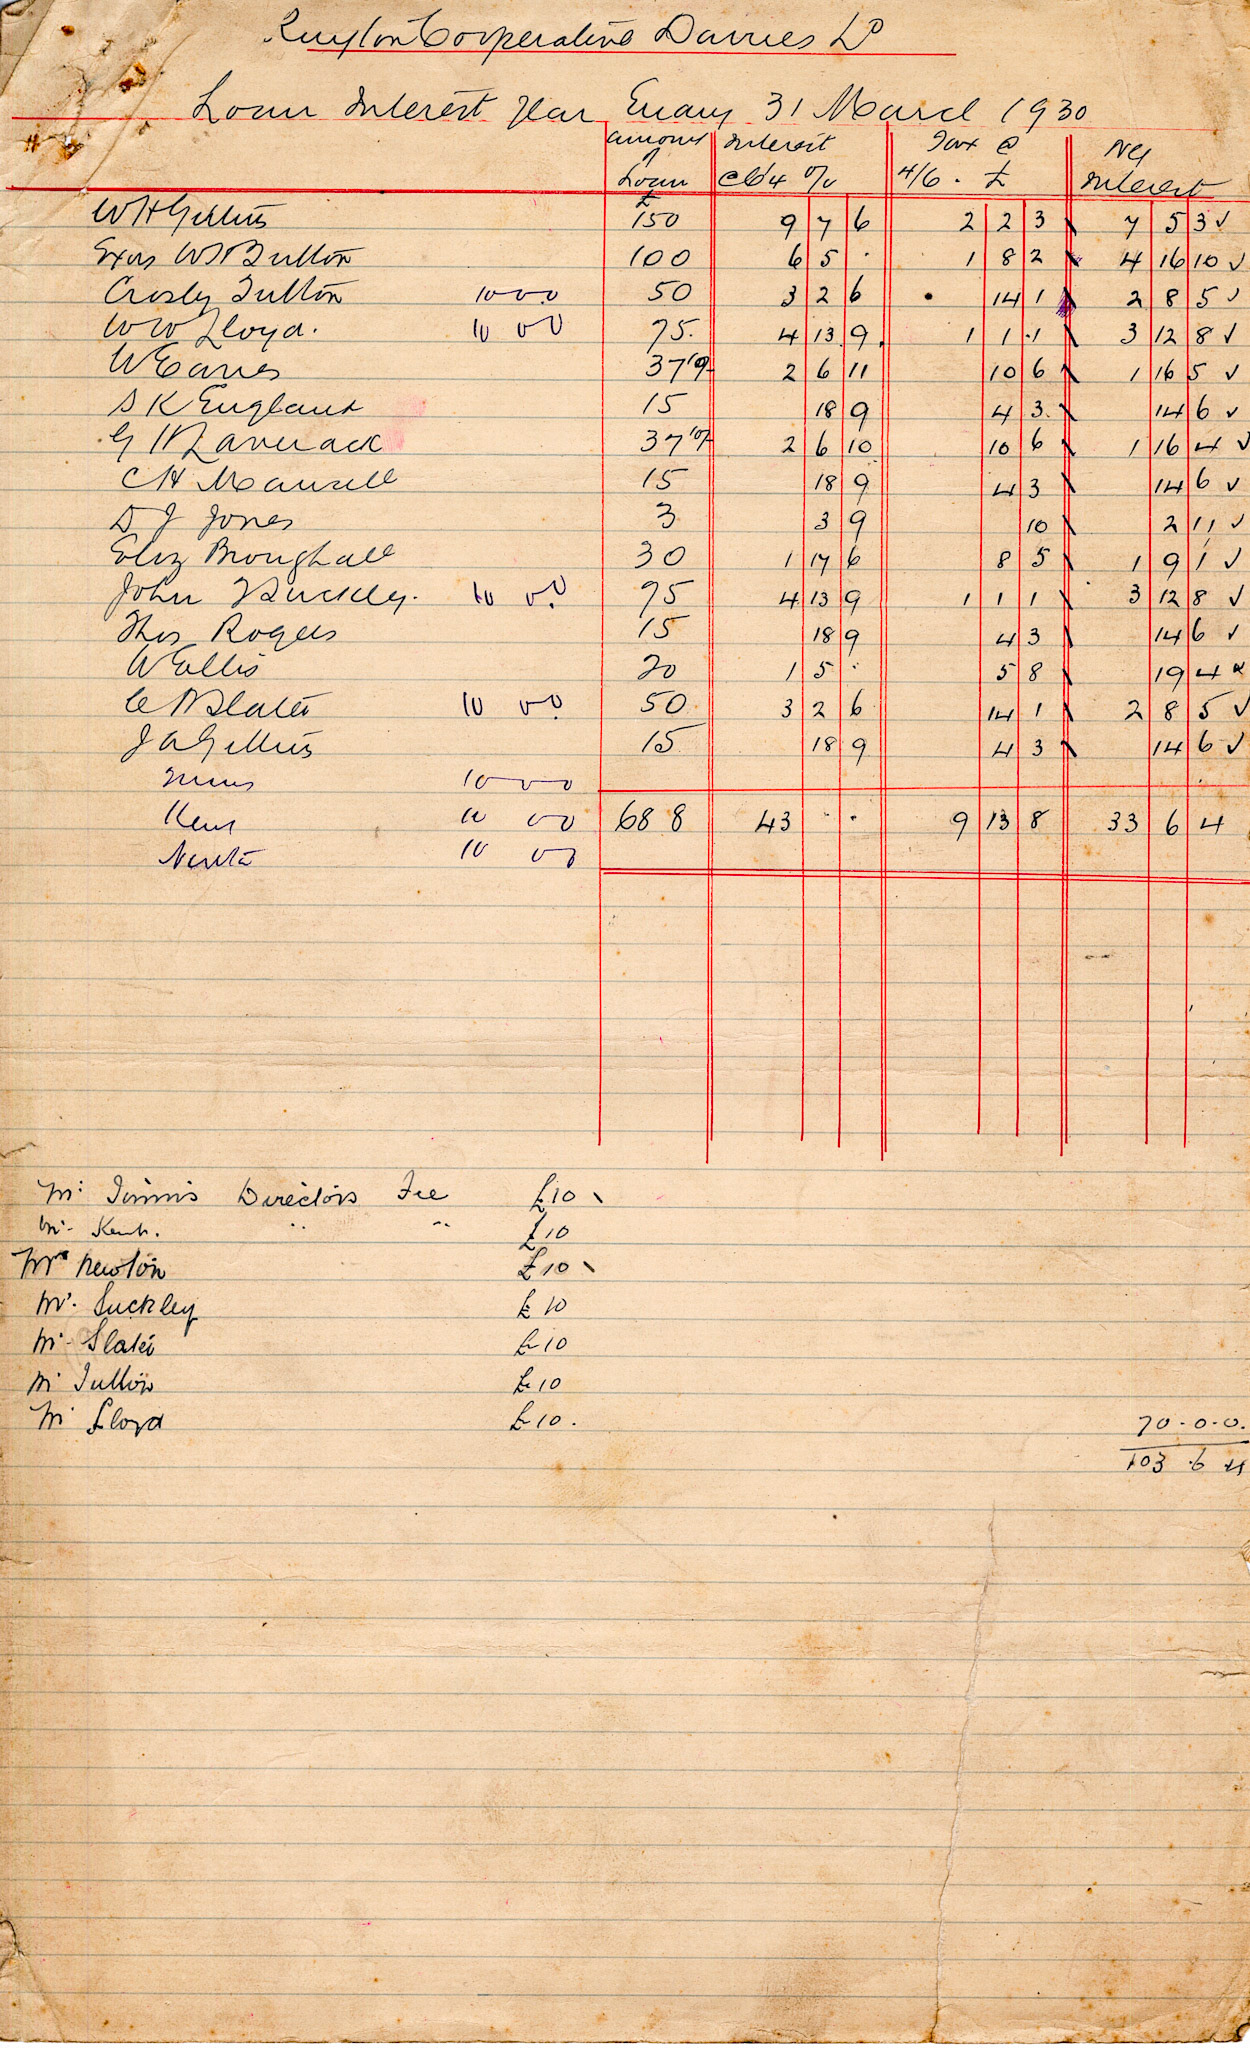 Ruyton Cooperative Dairies Ld
Loan Interest Year Ending 31 March 1930
amount of Loan Interest @ 6¼ % Tax @ 4/6 . £ Net Interest
£
W H Gittins 150 9 7 6 2 2 3 7 5 3 ✓
Exors W Button 100 6 5 . 1 8 2 4 16 10 ✓
Crosby Tutton 10 0 0 50 3 2 6 . 14 1 2 8 5 ✓
W W Lloyd. 10 0 0 75. 4 13 9. 1 1 1 3 12 8 ✓
W Eaves 37 10/- 2 6 11 10 6 1 16 5 ✓
S K England 15 18 9 4 3. 14 6 ✓
G H Laverack 37 10/- 2 6 10 10 6 1 16 4 ✓
C H Mansell 15 18 9 4 3 14 6 ✓
D J Jones 3 3 9 10 2 11 ✓
Eliz Broughall 30 1 17 6 8 5 1 9 1 ✓
John Suckley. 10 0 0 75 4 13 9 1 1 1 3 12 8 ✓
Thos Rogers 15 18 9 4 3 14 6 ✓
W Ellis 20 1 5 . 5 8 19 4
C Slater 10 0 0 50 3 2 6 14 1 2 8 5 ✓
J A Gittins 15 18 9 4 3 14 6 ✓
Timms 10 0 0
Kent 10 0 0 688 43 . . 9 13 8 33 6 4
Newton 10 0 0
Mr Timmis Directors Fee £10
Mr. Kent. " " £10
Mrs Newton £10
Mr. Suckley £10
Mr Slater £10
Mr Tutton £10
Mr Lloyd £10. 70.0.0.
103 .6 4